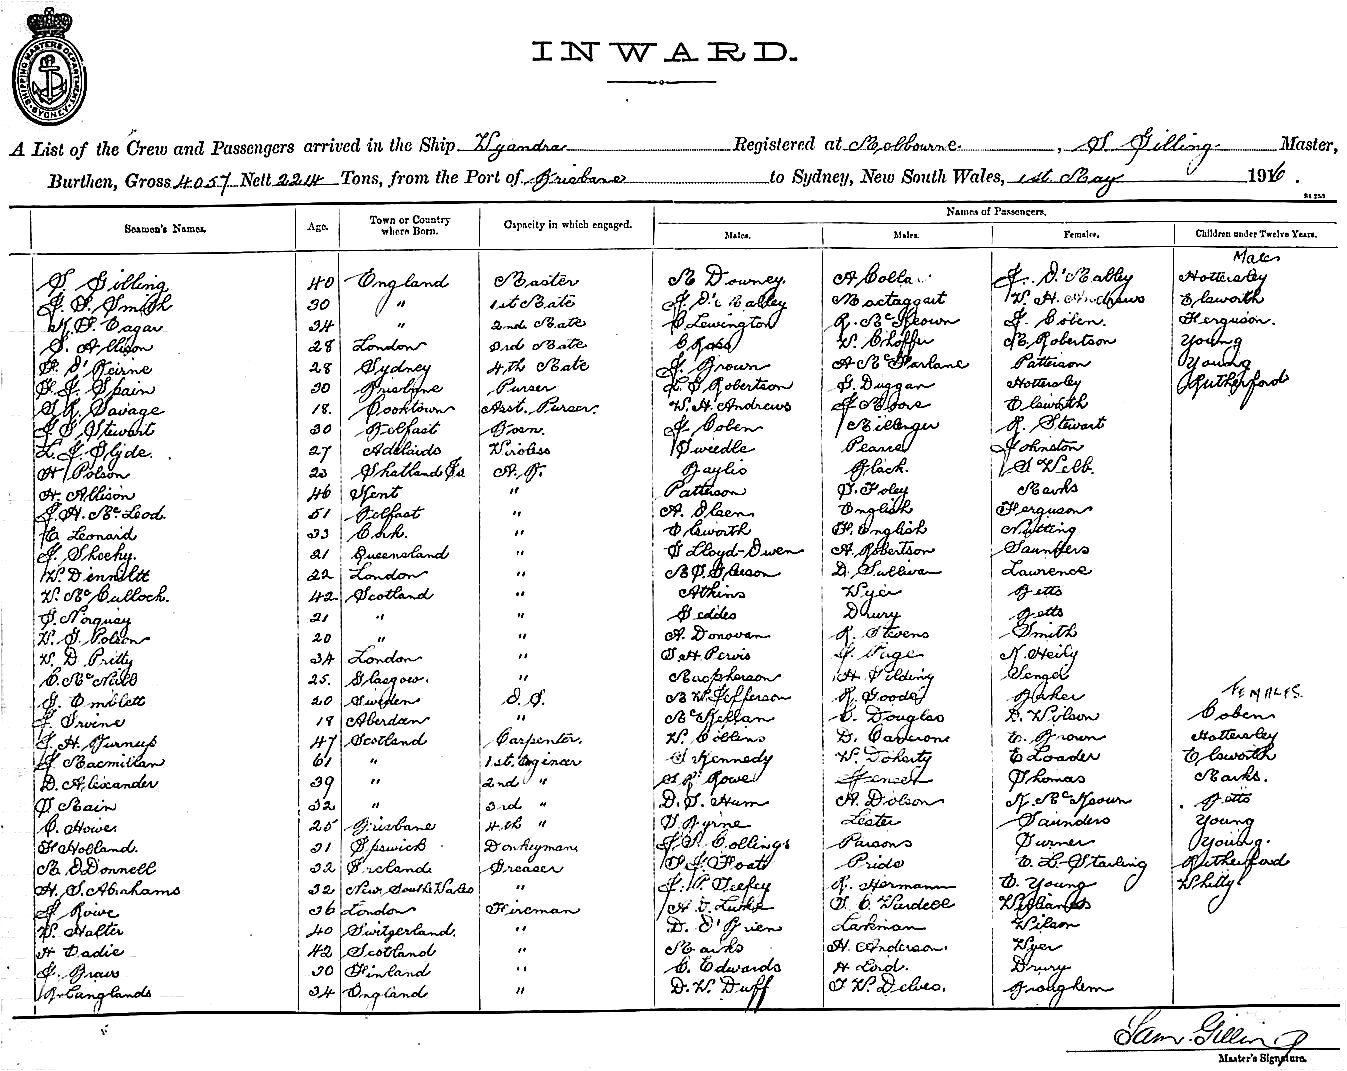 SHIPPING MASTERS DEPARTMENT SYDNEY
INWARD.
A List of the Crew and Passengers arrived in the Ship Wyandra Registered at Melbourne, S Gilling Master,
Burthen, Gross 4057 Nett 2214 Tons, from the Port of Brisbane to Sydney, New South Wales, 1st May 1916.
Names of Passengers.
Seamen's Names. Age. Town or Country where Born. Capacity in which engaged. Males. Males. Females. Children under Twelve Years.
Males
S. Gilling 40 England Master M Downey A Colla J. O'Malley Hottersley
J. S. Smith 30 " 1st Mate J O'Malley Mactaggart W. H. Andrews Elsworth
Eagar 34 " 2nd Mate C Lewington R. McKeown J. Coben. Ferguson.
S. Allison 28 London 3rd Mate C Ross W. M. Robertson Young
O'Beirne 28 Sydney 4th Mate J. Brown A McFarlane Patterson Young
J. Spain 30 Brisbane Purser Robertson G. Duggan Hottersley Rutherford
S. R. Savage 18. Cooktown Asst. Purser. W. H. Andrews J Moore Elsworth
J S. Stewart 30 Belfast Bosn. J Coben Millinger R. Stewart
L. J. Slyde. 27 Adelaide Wireless Tweedle Pearce Johnston
Polson 23 Shetland Is A. B. Baylis Black. S Webb.
A. Allison 46 Kent " Patterson P. Foley Marks
J. H. McLeod. 51 Belfast " A. Olsen English Ferguson
C Leonard 33 Cork. " Elsworth English Nutting
J. Sheehy. 21 Queensland " Lloyd-Owen A. Robertson Saunders
W. 22 London " D. Sullivan Lawrence
W. McCulloch. 42 Scotland " Atkins Wyer Betts
Norquay 21 " " Geddes Drury Betts
W. G. Polson 20 " " A. Donovan R. Stevens Smith
W. D Pritty 34 London " S H Pervis J. Page
C. McNeill 25. Glasgow. " Macpherson H. Gilding
Emblett 20 Sweden O. S. M W. Jefferson R. Goode Baker
FEMALES.
J Irvine 18 Aberdeen " McKellan C. Douglas D. Wilson Coben
J. H. Burnup 47 Scotland Carpenter. W. Collins D. Cameron C. Brown Hottersley
J Macmillan 61 " 1st. Enginer Kennedy W. Doherty E Loader Elsworth
D. Alexander 39 " 2nd " Rowe Thomas Marks.
Main 32 " 3rd " D. S. Ham A. Dolson McKeown Betts
C. Howes 25 Brisbane 4th " Byrne Lester Saunders Young
Holland. 31 Ipswich Donkeyman Collings Parsons Turner Young.
M. O'Donnell 32 Ireland Greaser Foott Pride Starling Rutherford
H. S. Abrahams 32 New South Wales " J. P. R. Hermann C. Young
J Rowe 36 London Fireman Wardell Williams
W. Halter 40 Switzerland. " D. O'Brien Larkman Wilson
A Eadie 42 Scotland " Marks H. Anderson. Wyer
30 Finland " C. Edwards A Lord. Drury
R Langlands 34 England " D. W. Duff W. Delves. Brougham
Sam. Gilling
Master's Signature.